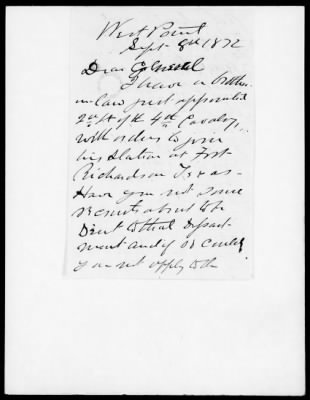 West Point
Sept 8th 1872
Dear General
I have a brother
in law just appointed
2d Lt of the 4th Cavalry,
with orders to join
his station at Fort
Richardson Texas -
Have you not some
recruits about to be
sent to that Depart-
ment and if so could
you not apply to the